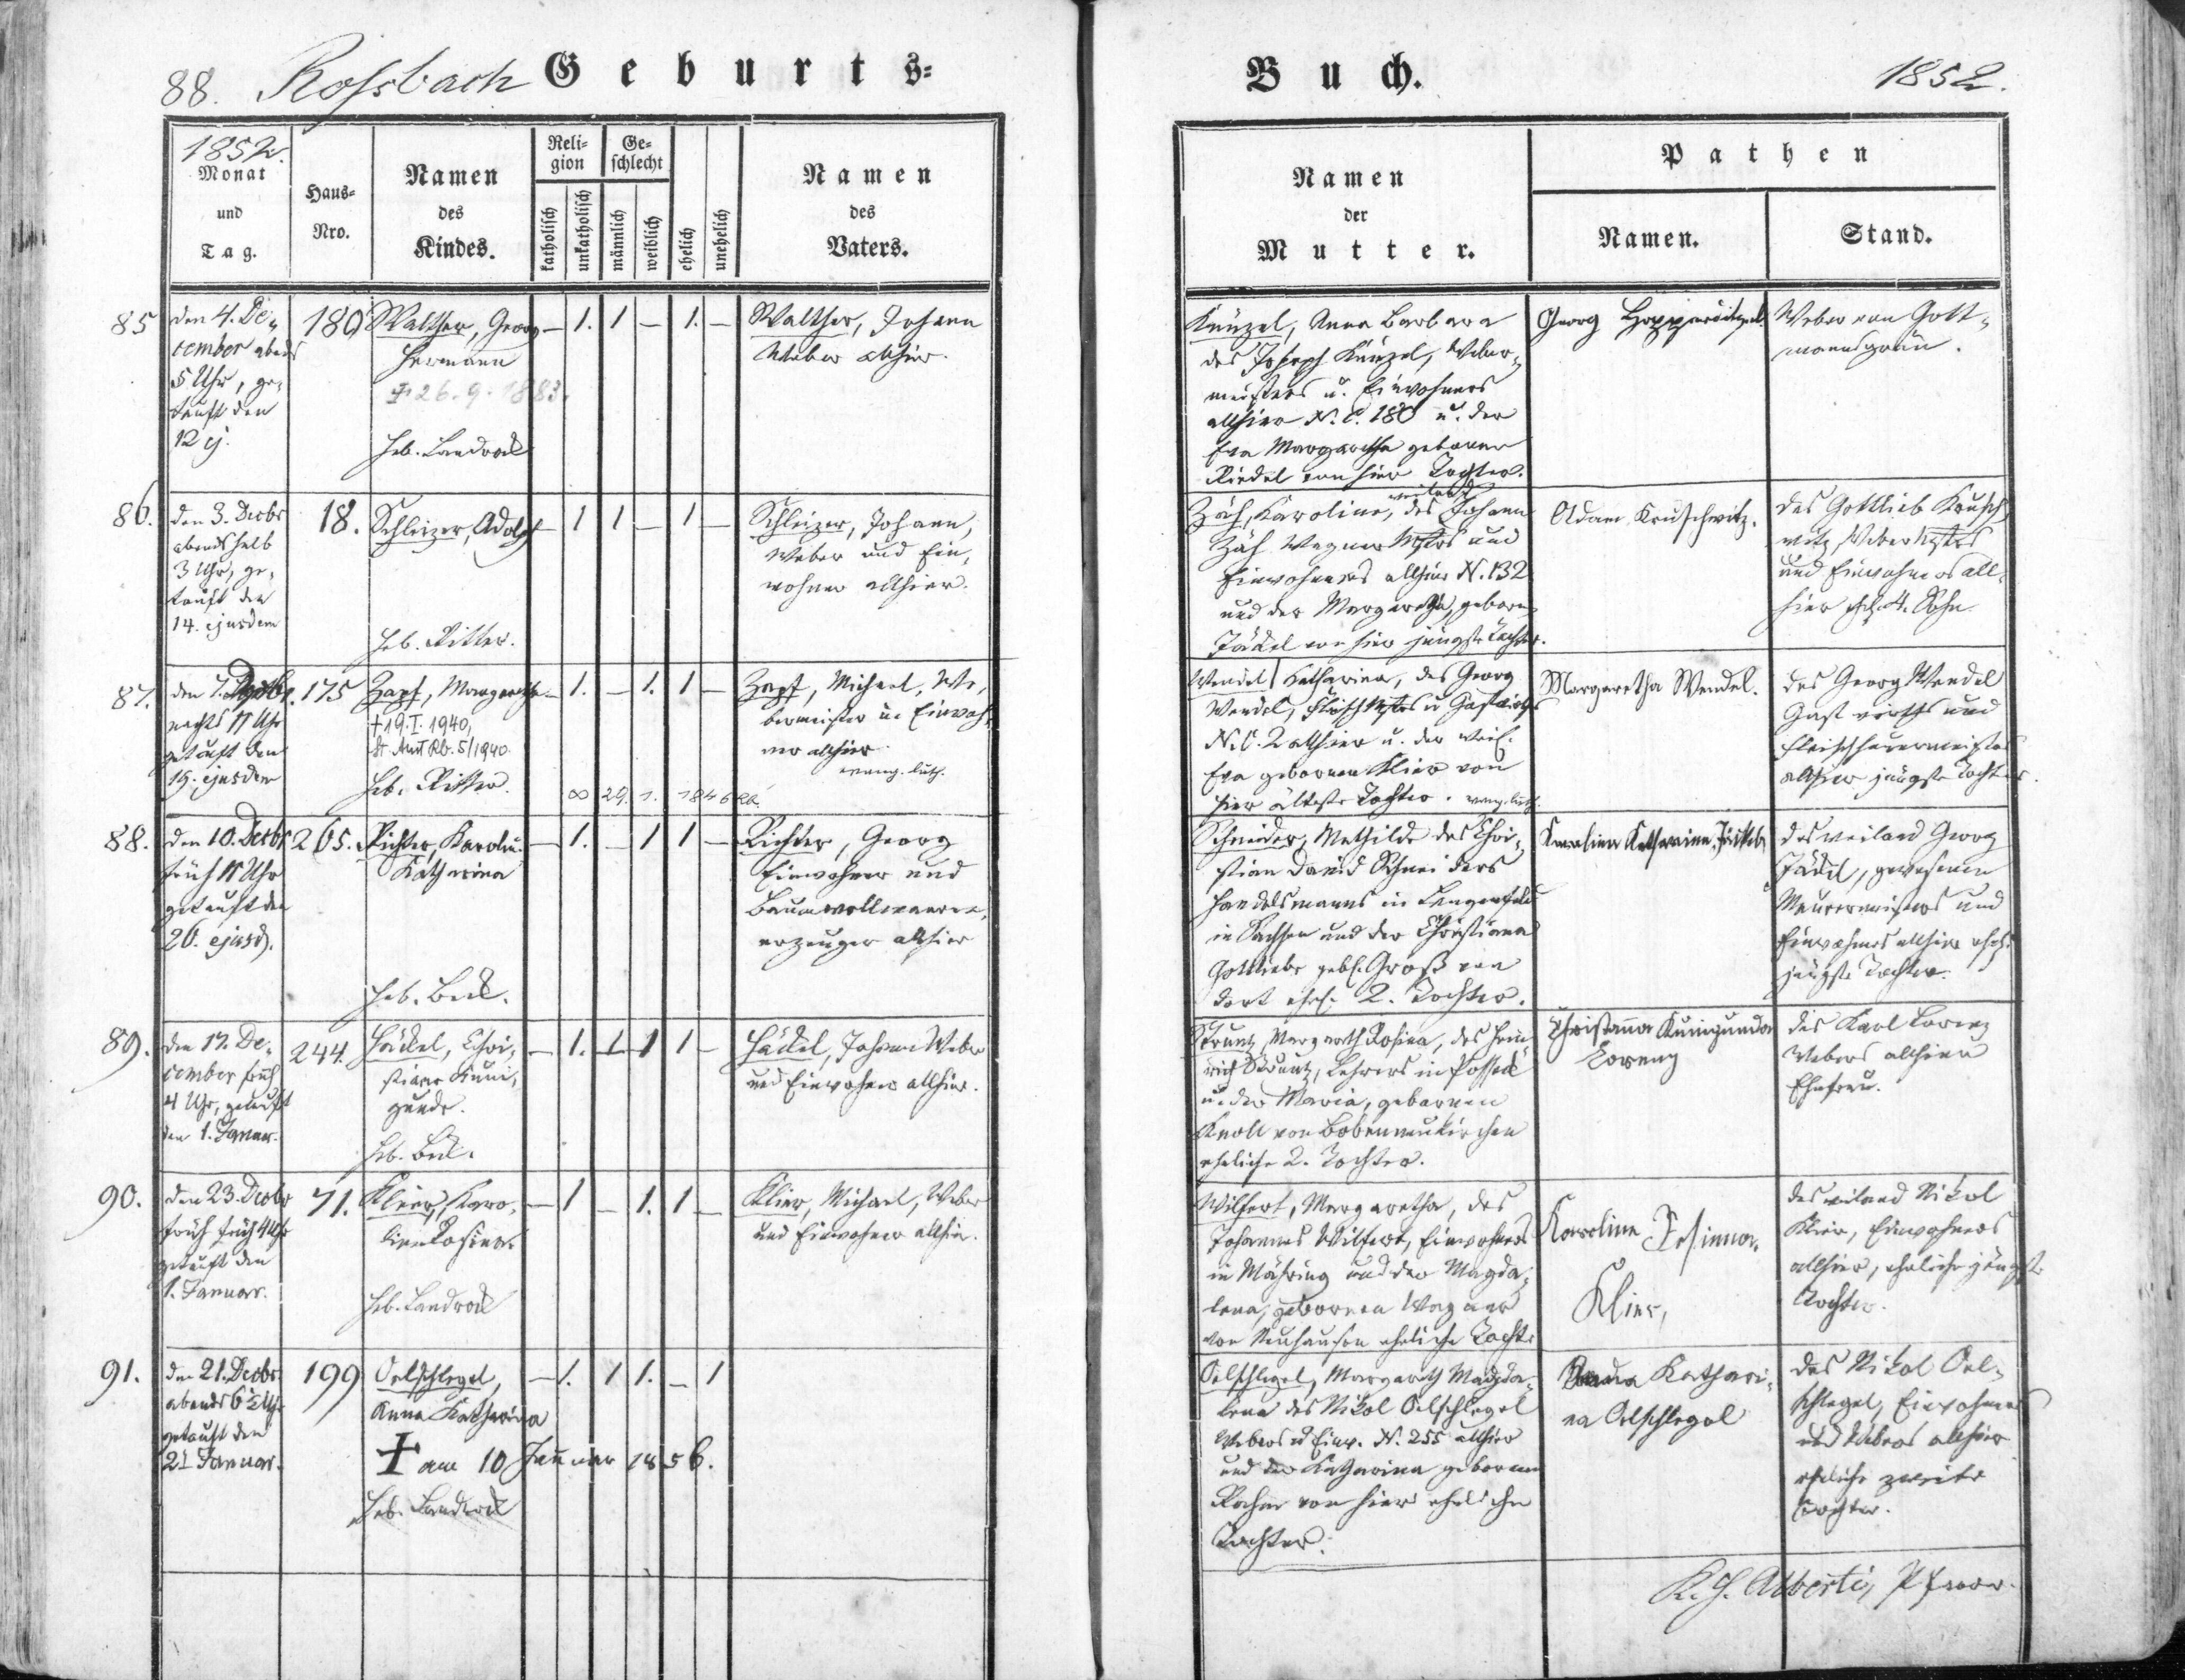 88. Rossbach Geburts-
Buch. 1852.
1852.
Monat
und
Tag.
Haus-
Nro.
Namen
des
Kindes.
Reli-
gion
katholisch
unkatholisch
Ge-
schlecht
männlich
weiblich
ehelich
unehelich
Namen
des
Vaters.
Namen
der
Mutter.
Pathen
Namen.
Stand.
85
den 4. De-
cember abends
5 Uhr, ge-
tauft den
12 ej.
180
Walther, Georg
Hermann
† 26.9.1883.
Heb. Landrock
– 1. 1 – 1. –
Walther, Johann
Weber allhier.
Künzel, Anna Barbara
des Joseph Künzel, Weber-
meisters u. Einwohners
allhier N. C. 180 u. der
Eva Margaretha geborne
Riedel von hier Tochter.
Georg
Weber von Gott-
mannsgrün.
86.
den 3. Decbr
abends halb
3 Uhr, ge-
tauft den
14. ejusdem
18.
Schleizer, Adolf
Heb. Ritter.
– 1 1 – 1 –
Schleizer, Johann,
Weber und Ein-
wohner allhier.
weiland
Zäh, Karoline, des Johann
Zäh Wagner Mstrs und
Einwohners allhier N. 132
und der Margaretha, geborne
Jäckel von hier jüngste Tochter.
Adam Kruschwitz.
des Gottlieb Krusch
witz, Weber Mstrs
und Einwohners all-
hier ehel. 4. Sohn.
87.
den 7. Decbr.
nachts 11 Uhr
getauft den
19. ejusdem
175
Zapf, Margaretha
† 19. I. 1940,
St. Amt Rb. 5/1940.
Heb. Ritter.
– 1. – 1. 1 –
∞ 29. 1. 1846 Rb.
Zapf, Michael, We-
bermeister u. Einwoh-
ner allhier.
evang. luth.
Wendel, Katharina, des Georg
Wendel, Fleisch Mstrs u Gastwirths
N. C. 2 allhier u. der weil.
Eva gebornen Klier von
hier älteste Tochter. evang. luth.
Margaretha Wendel.
des Georg Wendel
Gastwirths und
Fleischhauermeisters
allhier jüngste Tochter.
88.
den 10. Decbr
früh 11 Uhr
getauft den
26. ejusd.
265.
Richter, Karolin.
Katharina
Heb. Beck.
– 1. – 1 1 –
Richter, Georg
Einwohner und
Baumwollwaaren-
erzeuger allhier
Schneider, Mathilde des Chri-
stian David Schneiders
Handelsmanns in Lengenfeld
in Sachsen und der Christiana
Gottliebe gebl. Groß von
dort ehel. 2. Tochter.
Karolina Katharina Jäckel
des weiland Georg
Jäckel, gewesenen
Maurermeisters und
Einwohners allhier ehel.
jüngste Tochter.
89.
den 17. De-
cember früh
4 Uhr, getauft
den 1. Januar.
244.
Häckel, Chri-
stiane Kuni-
gunde.
Heb. Beck.
– 1. – 1 1 –
Häckel, Johann Weber
und Einwohner allhier.
Strunz, Margareth Rosina, des Hein-
rich Strunz, Lehrers in Posseck
u. der Maria, gebornen
Knoll von Bobenneukirchen
eheliche 2. Tochter.
Christiana Kunigunda
Lorenz
des Karl Lorenz
Webers allhier
Ehefrau.
90.
den 23. Decbr
früh 4 Uhr
getauft den
1. Januar.
71.
Klier, Karo-
line Rosine.
Heb. Landrock
– 1 – 1. 1 –
Klier, Michael, Weber
und Einwohner allhier.
Wilfert, Margaretha, des
Johannes Wilfert, Einwohners
in Mähring und der Magda-
lena, gebornen Wagner
von Neuhausen eheliche Tochter
Karolina
Klier,
des weiland Nikol
Klier, Einwohners
allhier, eheliche jüngste
Tochter.
91.
den 21. Decbr.
abends 6 Uhr
getauft den
2. Januar.
199
Oelschlegel,
Anna Katharina
† am 10 Januar 1856.
Heb. Landrock
– 1. 1 1. – 1
Oelschlegel, Margareth Magda-
lena des Nikol Oelschlegel
Webers u Einw. N. 255 allhier
und der Katharina gebornen
von hier eheliche
Tochter.
Kathari-
na Oelschlegel
des Nikol Oel-
schlegel, Einwohners
und Webers allhier
eheliche zweite
Tochter.
Alberti, Pfarrer.